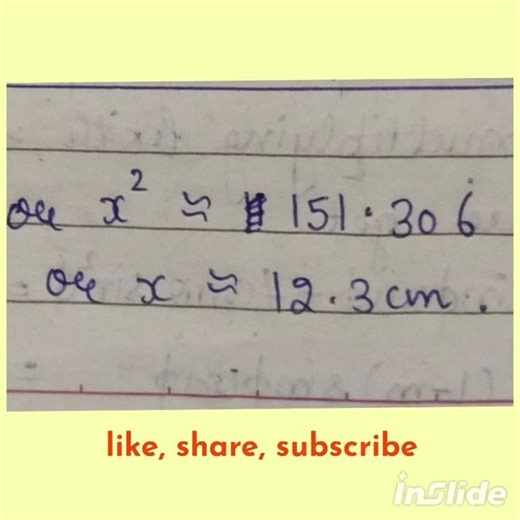 or x² ≈ 151.306
or x ≈ 12.3 cm.
like, share, subscribe
inSlide